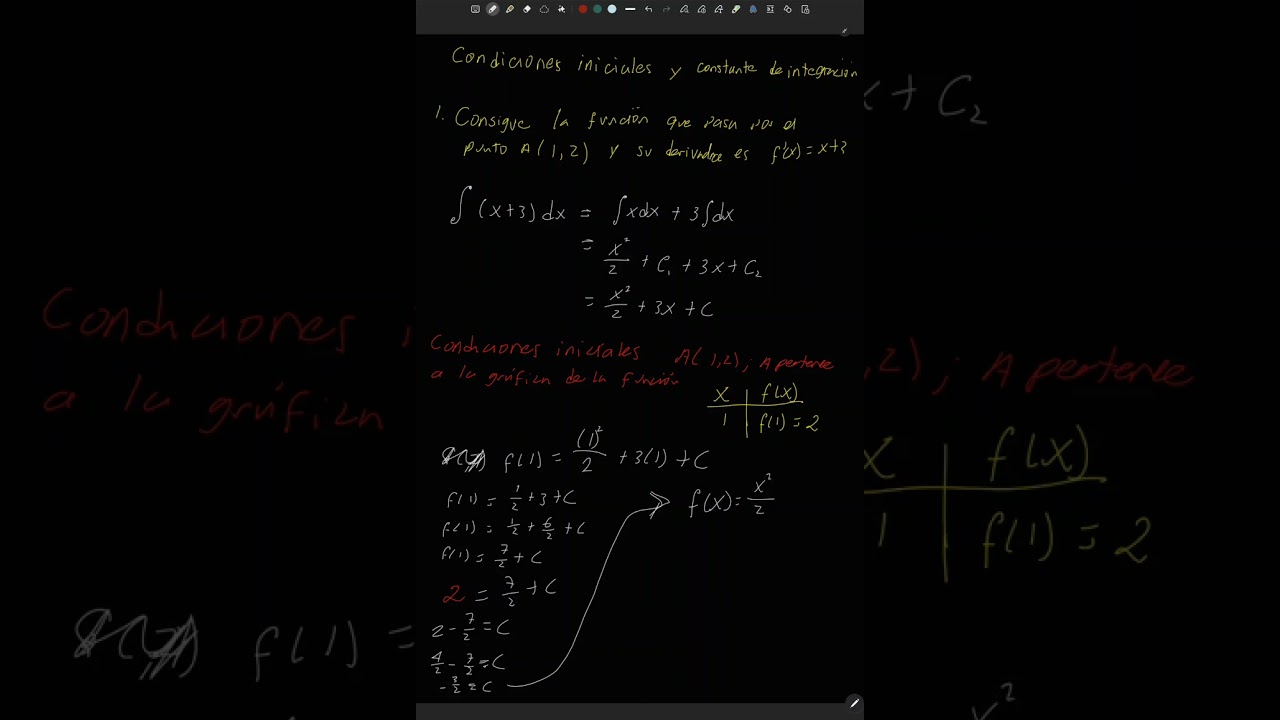 Condiciones iniciales y constante de integración
1. Consigue la función que pasa por el
punto A(1,2) y su derivada es f'(x)=x+3
∫(x+3)dx = ∫xdx + 3∫dx
= x²/2 + C₁ + 3x + C₂
= x²/2 + 3x + C
Condiciones iniciales A(1,2); A pertenece
a la gráfica de la función
x | f(x)
1 | f(1)=2
f(1) = (1)²/2 + 3(1) + C
f(1) = 1/2 + 3 + C
f(1) = 1/2 + 6/2 + C
f(1) = 7/2 + C
2 = 7/2 + C
2 - 7/2 = C
4/2 - 7/2 = C
-3/2 = C
f(x) = x²/2
x + C₂
Condiciones i
a la gráfica
,2); A pertenece
x | f(x)
1 | f(1)=2
f(1) =
x²